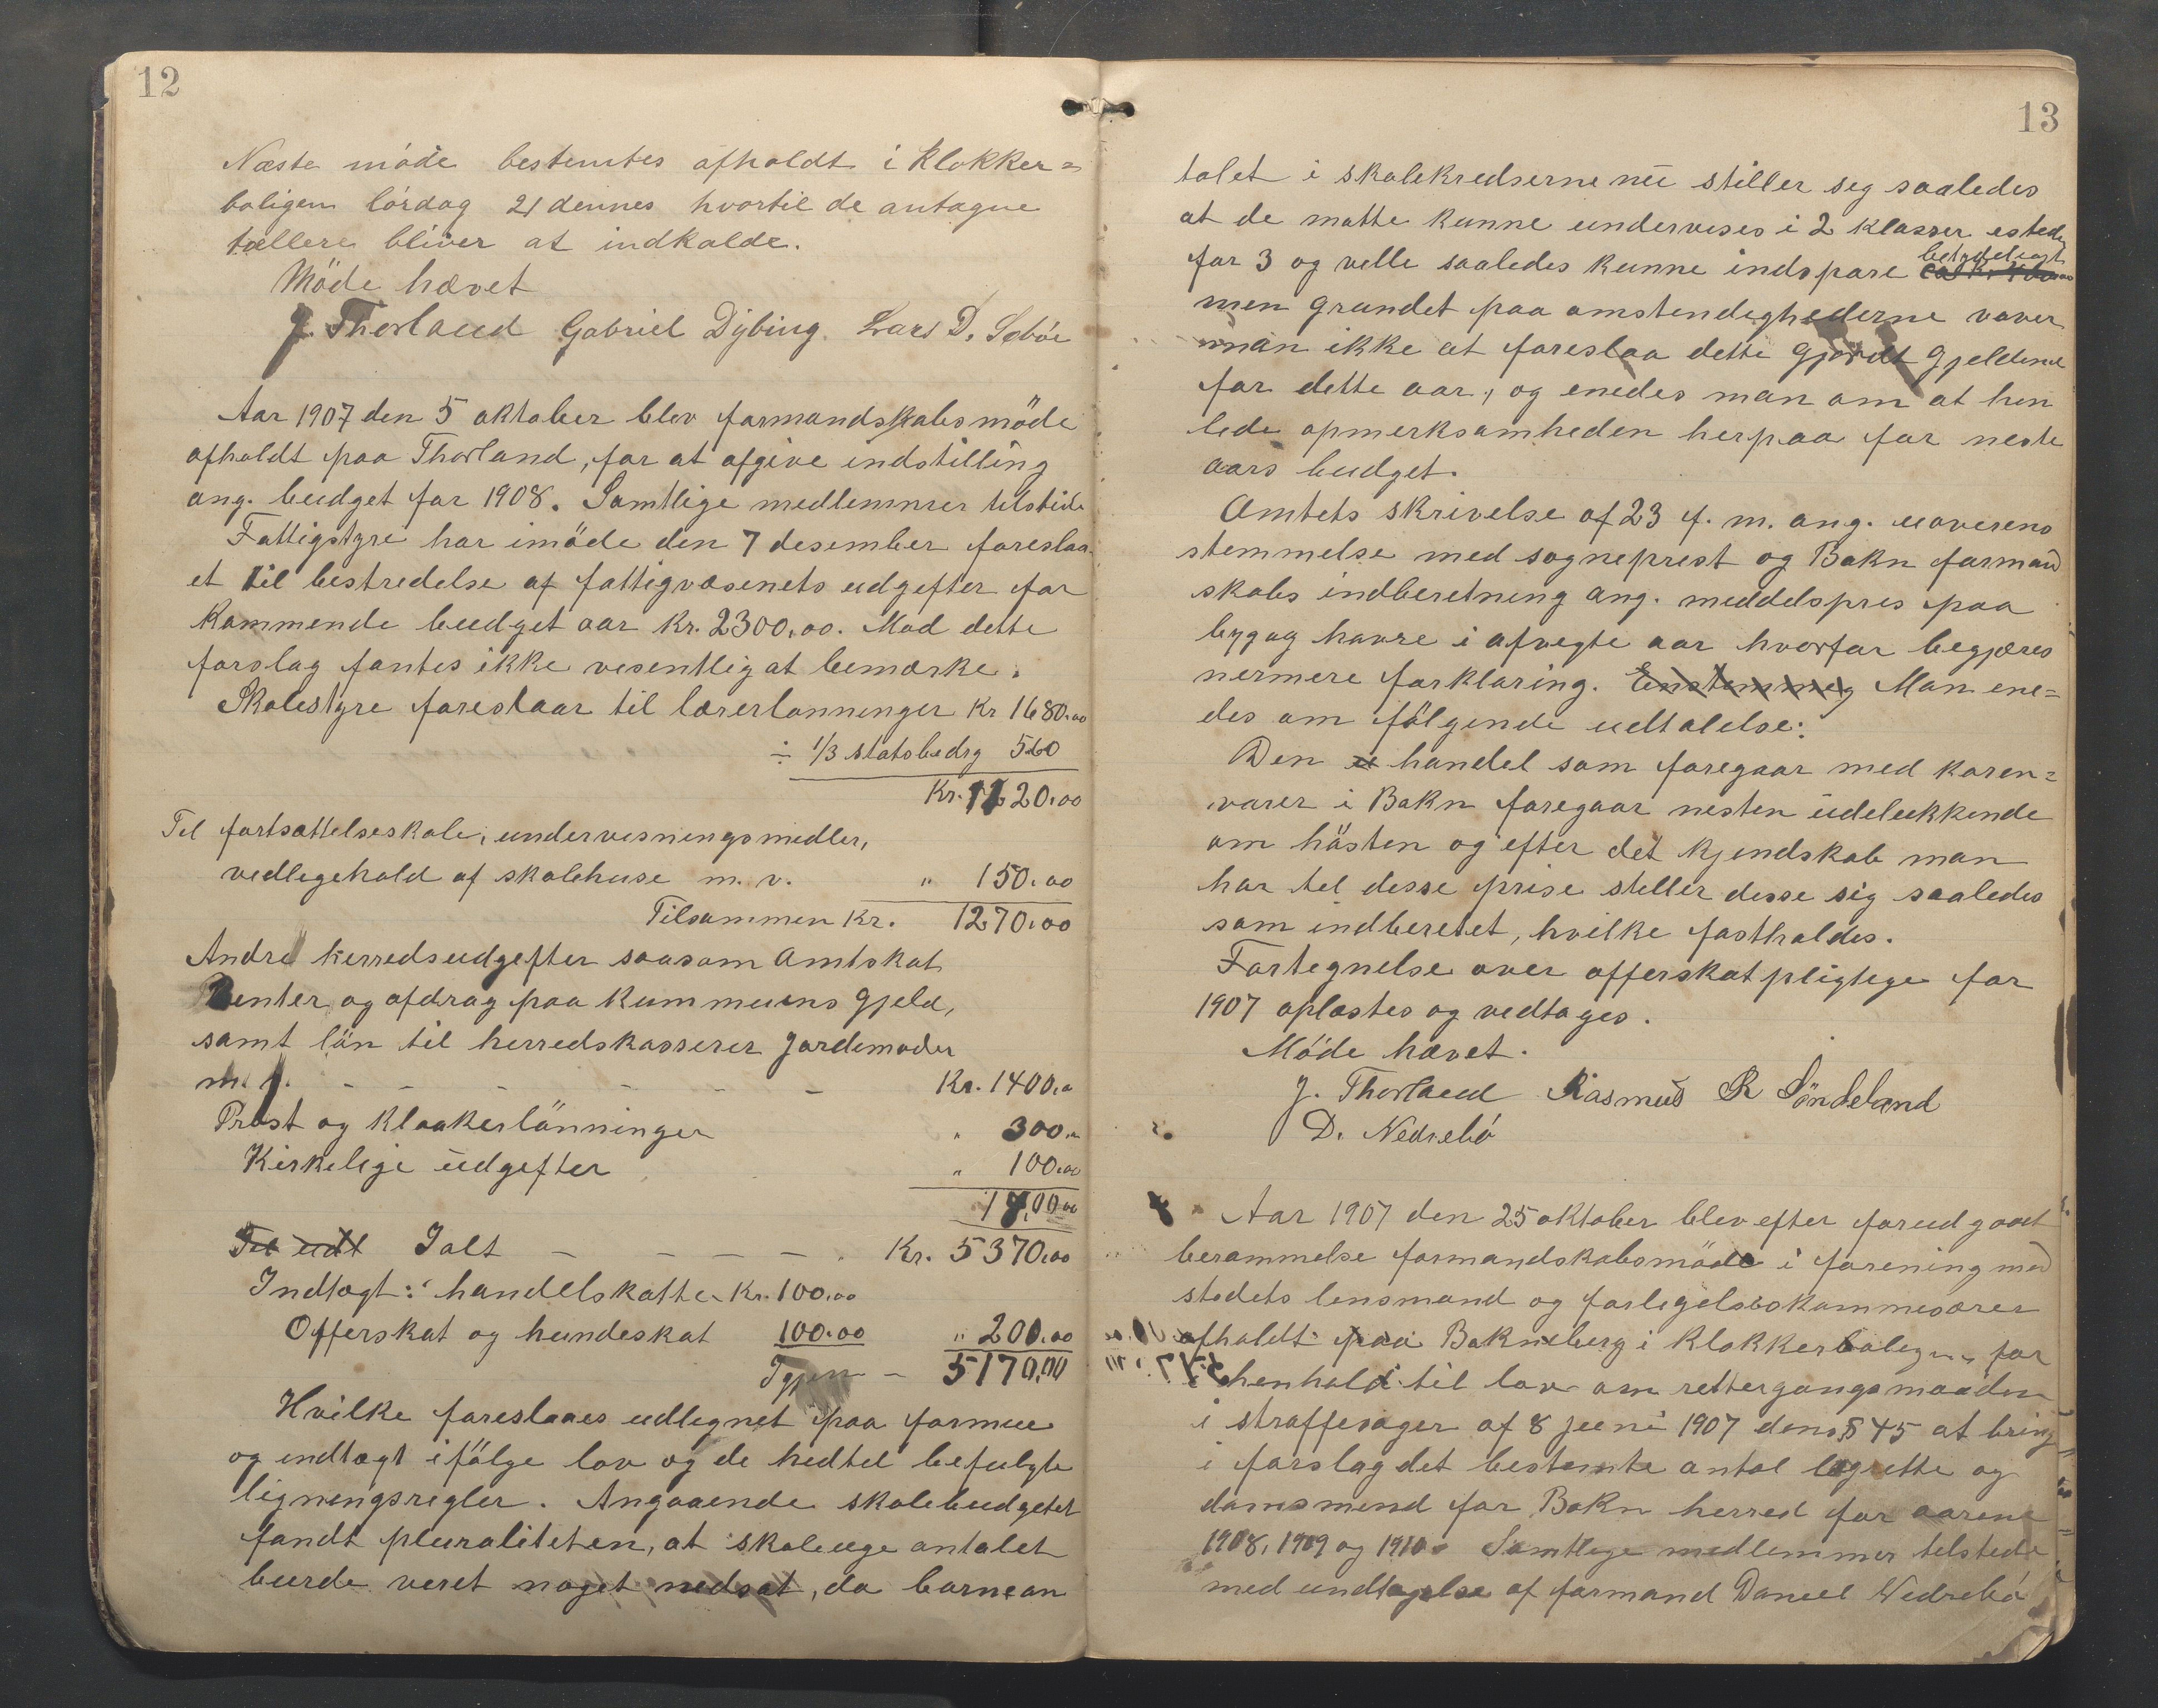 12
Næste möde bestemtes afholdt i Klokker=
boligen lördag 21 dennes hvortil de antagne
tællere bliver at indkalde.
Möde hævet
J. Thorland Gabriel Dybing. Lars D. Seböe
Aar 1907 den 5 oktober blev formandskabsmöde
afholdt paa Thorland, for at afgive indstilling
ang. budget for 1908. Samtlige medlemmer tilstede
Fattigstyre har i möde den 7 desember foreslaa-
et til bestredelse af fattigvæsenets udgefter for
kommende budget aar Kr. 2300,00. Mod dette
forslag fantes ikke vesentlig at bemærke.
Skolestyre foreslaar til lærerlønninger Kr 1680.00
÷ 1/3 statsbedrg 560
Kr. 1120.00
Til fortsættelseskole, undervisningsmidler,
vedlegehold af skolehuse m. v. " 150.00
Tilsammen Kr. 1270.00
Andre herredsudgefter saasom Amtskat
Renter og afdrag paa kummuens gjeld,
samt lön til herredskasserer Jordemoder
m. v. - - - - - - Kr. 1400.00
Prest og Klokkerlönninger " 300.00
Kirkelige udgefter " 100.00
1800.00
Til udt Ialt - - - - - Kr. 5370.00
Indtægt: handelskatte Kr. 100.00
Offerskat og hundeskat 100.00 " 200.00
Igjen - 5170.00
Hvilke foreslaaes udlegnet paa formue
og endtægt ifölge lov og de hedtel befulgte
ligningsregler. Angaaende skolebudgetet
fandt pluraliteten, at skoleuge antalet
burde veret noget nedsat, da barnean
13
talet i skolekredserne nu stiller seg saaledes
at de matte kunne undervises i 2 klasser isteden
for 3 og velle saaledes kunne indspare betydeligt
men grundet paa omstendeghederne vover
man ikke at foreslaa dette gjordt gjeldend
for dette aar, og enedes man om at hen
lede opmerksamheden herpaa for neste
aars budget.
Amtets skrivelse af 23 f. m. ang. uoverens
stemmelse med sogneprest og Bokn formand
skabs indberetning ang. meddelspres paa
byg og havre i afvegte aar hvorfor begjæres
nermere forklaring. Enstemmeg Man ene=
des om fölgende udtalelse:
Den handel som foregaar med koren=
varer i Bokn foregaar nesten udelukkende
om hösten og efter det kjendskab man
har tel desse prise steller desse sig saaledes
som indberetet, hvilke fastholdes.
Fortegnelse over offerskatpligtege for
1907 oplæstes og vedtages.
Möde hævet.
J. Thorland Rasmus R Söndeland
D. Nedrebö
Aar 1907 den 25 oktober blev efter forud gaaet
berammelse formandskabsmöde i forening med
stedets lensmand og forligelseskommesærer
afholdt paa Bokneberg i Klokkerbolegen for
i henhold til lov om rettergangsmaaden
i straffesager af 8 juni 1907 dens § 45 at bring
i forslag det bestemte antal lagrette og
domsmend for Bokn herred for aarene
1908, 1909 og 1910. Samtlege medlemmer telstede
med undtagelse af formand Daneel Nedrebö